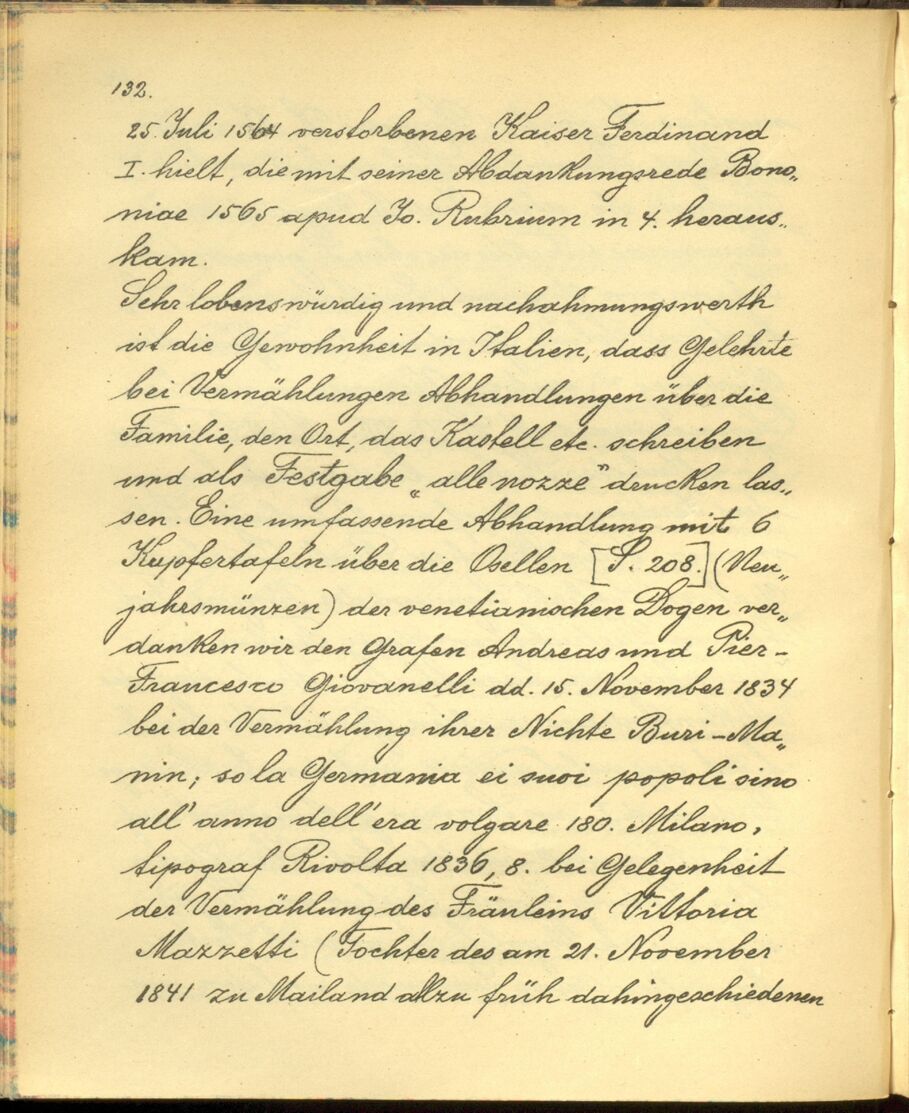 132.
25. Juli 1564 verstorbenen Kaiser Ferdinand
I. hielt, die mit seiner Abdankungsrede Bono„
niae 1565 apud Jo. Rubrium in 4. heraus„
kam.
Sehr lobenswürdig und nachahmungswerth
ist die Gewohnheit in Italien, dass Gelehrte
bei Vermählungen Abhandlungen über die
Familie, den Ort, das Kastell etc. schreiben
und als Festgabe „alle nozze" drucken las„
sen. Eine umfassende Abhandlung mit 6
Kupfertafeln über die Osellen [S. 208.] (Neu„
jahrsmünzen) der venetianischen Dogen ver„
danken wir den Grafen Andreas und Pier-
Francesco Giovanelli dd. 15. November 1834
bei der Vermählung ihrer Nichte Buri-Ma„
nin; so la Germania ei suoi popoli sino
all' anno dell' era volgare 180. Milano,
tipograf Rivolta 1836, 8. bei Gelegenheit
der Vermählung des Fräuleins Vittoria
Mazzetti (Tochter des am 21. November
1841 zu Mailand allzu früh dahingeschiedenen